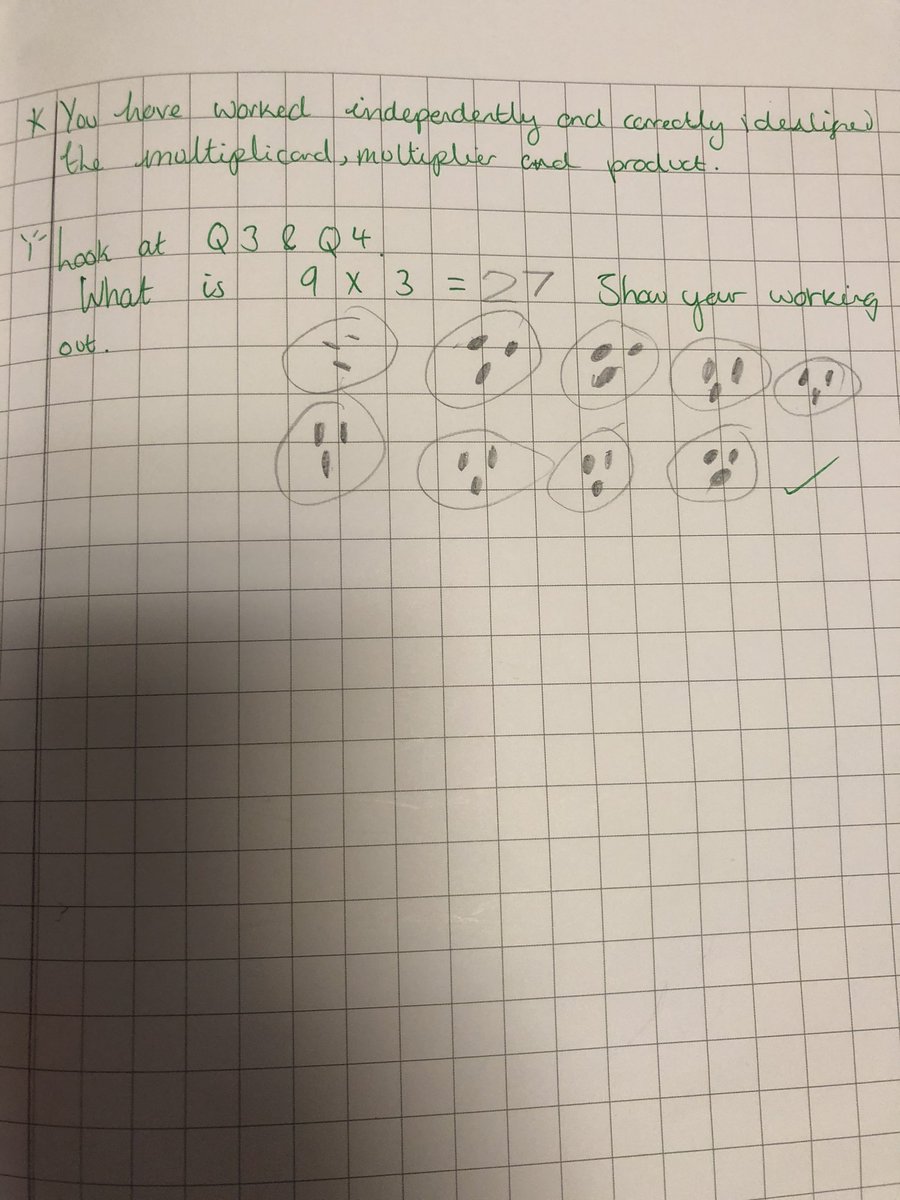 * You have worked independently and correctly identified
the multiplicand, multiplier and product.
Look at Q3 & Q4.
What is 9 x 3 = 27 Show your working
out.